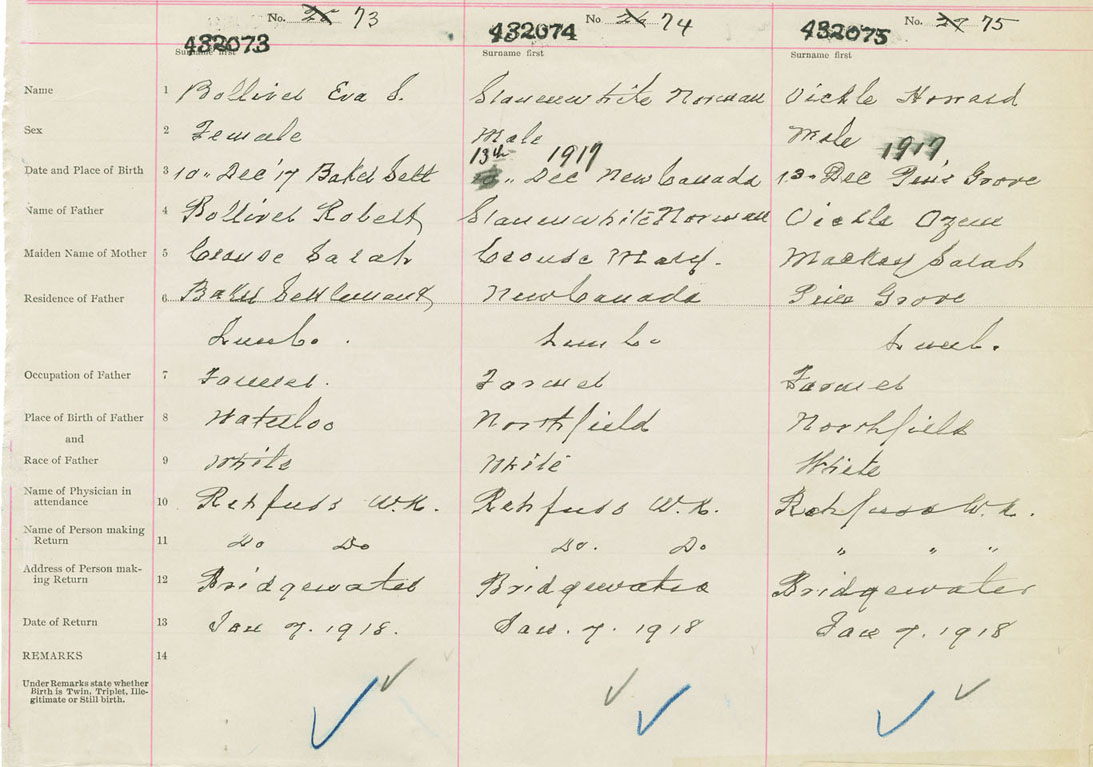 No. 25 73
No 26 74
No. 27 75
432073
432074
432075
Surname first
Surname first
Surname first
Name 1 Bolliver Eva S. Slauenwhite Norman Vickle Howard
Sex 2 Female Male Male
13th 1917 1917
Date and Place of Birth 3 10" Dec '17 Baker Sett " Dec New Canada 13" Dec Pine Grove
Name of Father 4 Bolliver Robert Slauenwhite Norman Vickle Ozem
Maiden Name of Mother 5 Crouse Sarah Crouse Mary. Mackay Sarah
Residence of Father 6 Baker Settlement New Canada Pine Grove
Lun Co. Lun Co Lun C.
Occupation of Father 7 Farmer. Farmer Farmer
Place of Birth of Father 8 Waterloo Northfield Northfield
and
Race of Father 9 White White White
Name of Physician in
attendance 10 Rehfuss W.K. Rehfuss W.K. Rehfuss W.K.
Name of Person making
Return 11 Do Do Do. Do " " "
Address of Person mak-
ing Return 12 Bridgewater Bridgewater Bridgewater
Date of Return 13 Jan 7. 1918. Jan. 7. 1918 Jan 7. 1918
REMARKS 14
Under Remarks state whether
Birth is Twin, Triplet, Ille-
gitimate or Still birth.